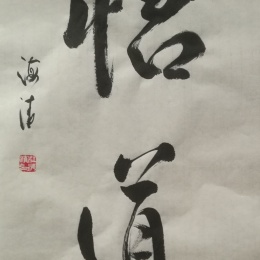 悟道
海清